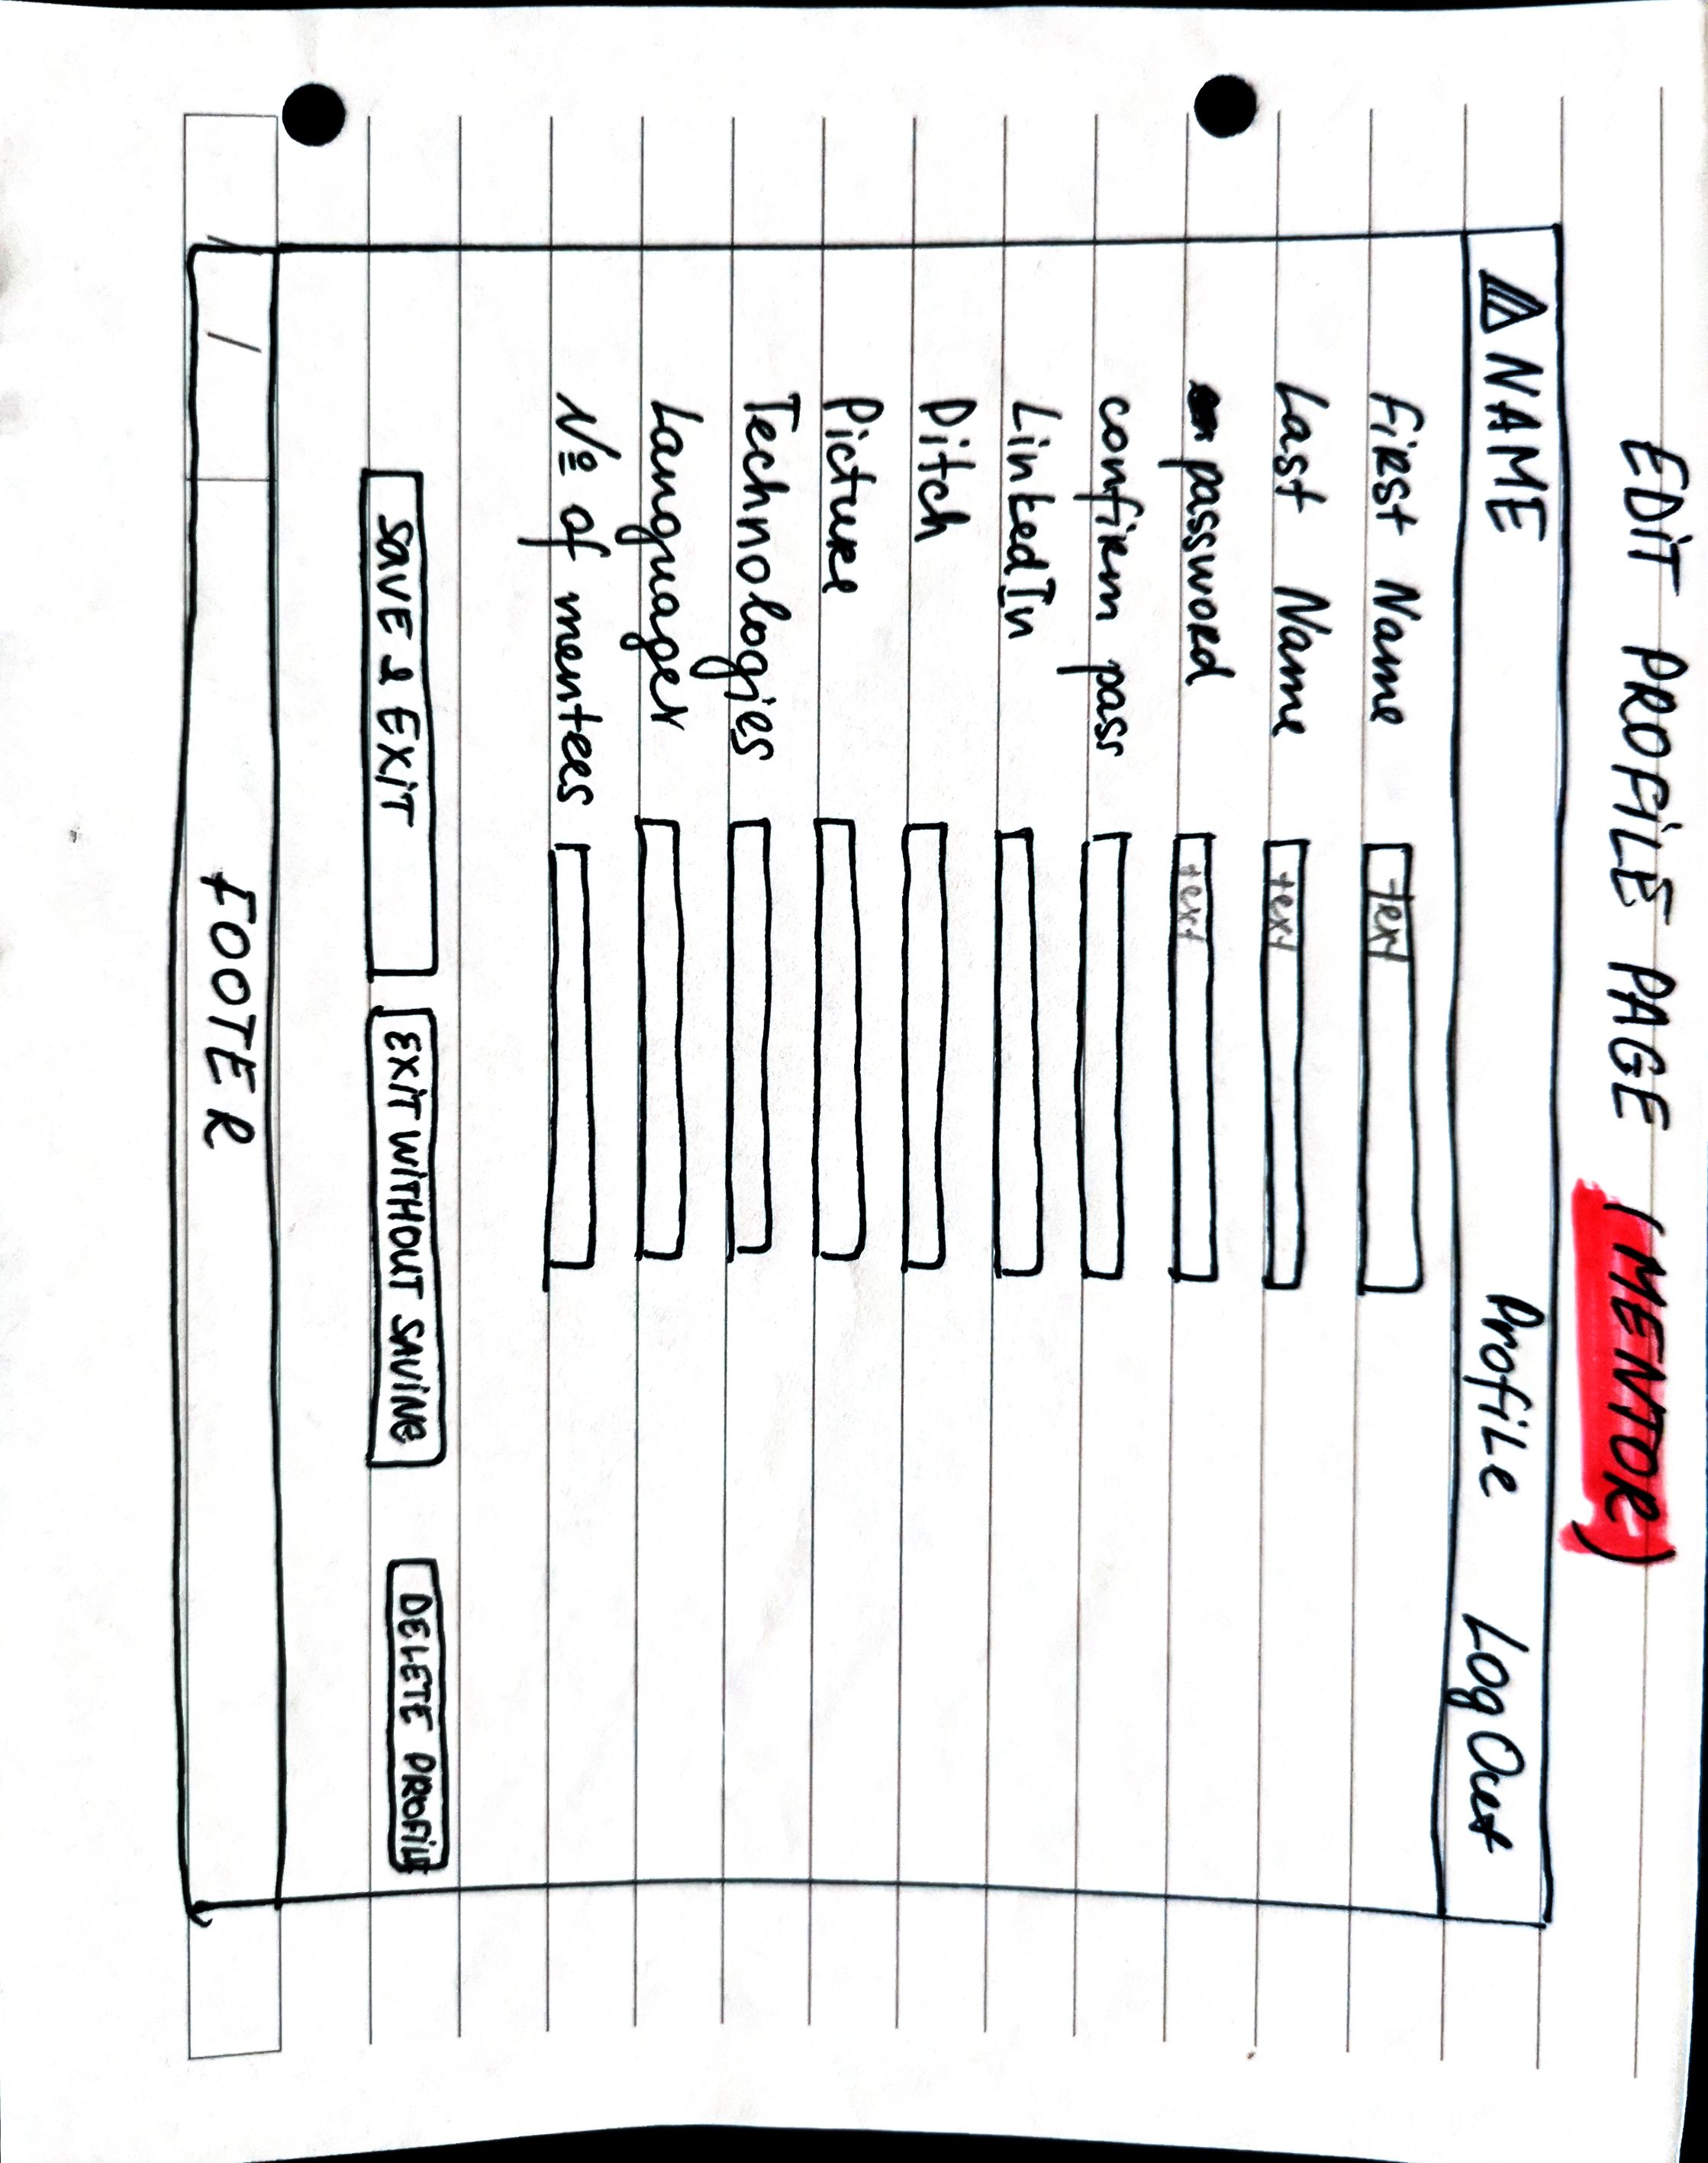 EDIT PROFILE PAGE (MENTOR)
NAME Profile Log Out
First Name text
Last Name text
password text
confirm pass
LinkedIn
Pitch
Picture
Technologies
Languages
№ of mentees
SAVE & EXIT EXIT WITHOUT SAVING DELETE PROFILE
FOOTER